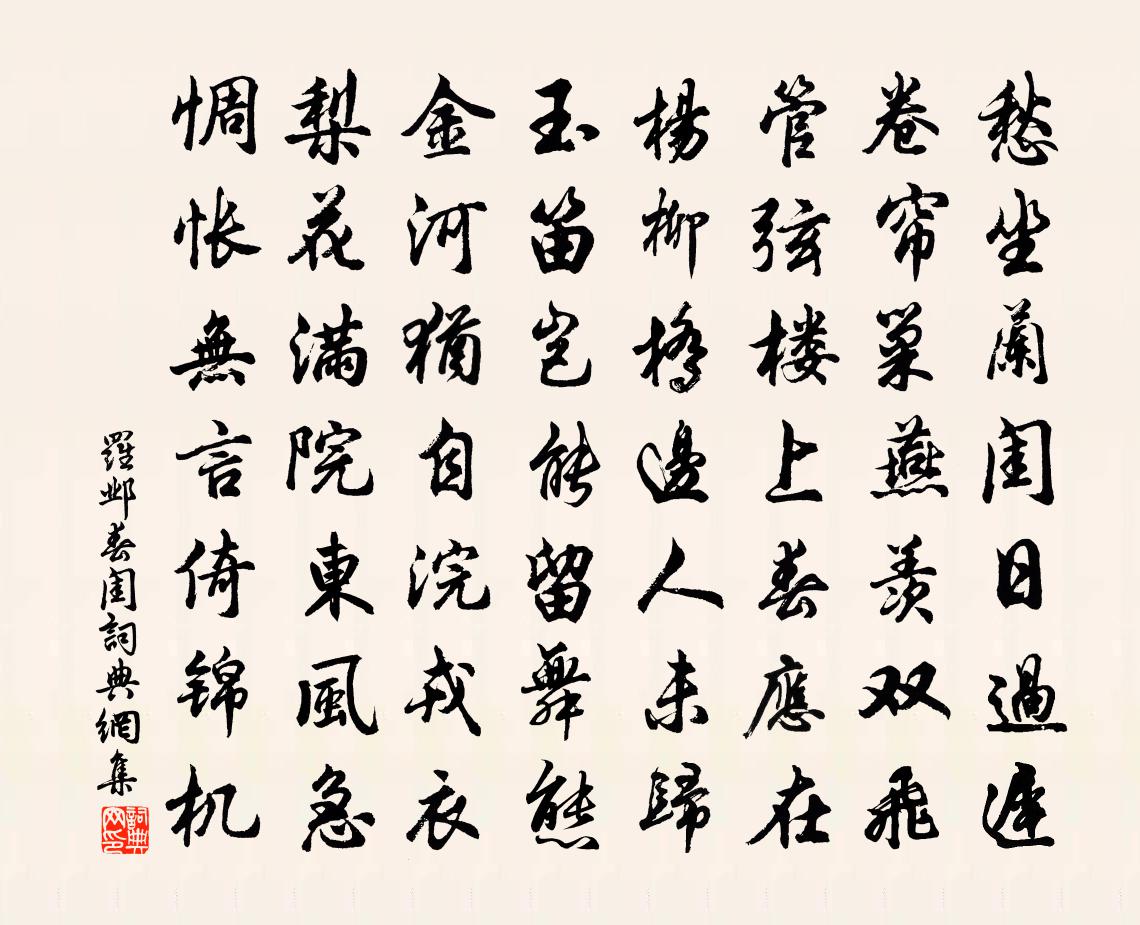 愁坐蘭閨日過遲
卷帘巢燕羨双飛
管弦楼上春應在
楊柳橋邊人未歸
玉笛岂能留舞態
金河猶自浣戎衣
梨花滿院東風急
惆怅無言倚锦机
羅邺春閨詞典網集
詞典網印